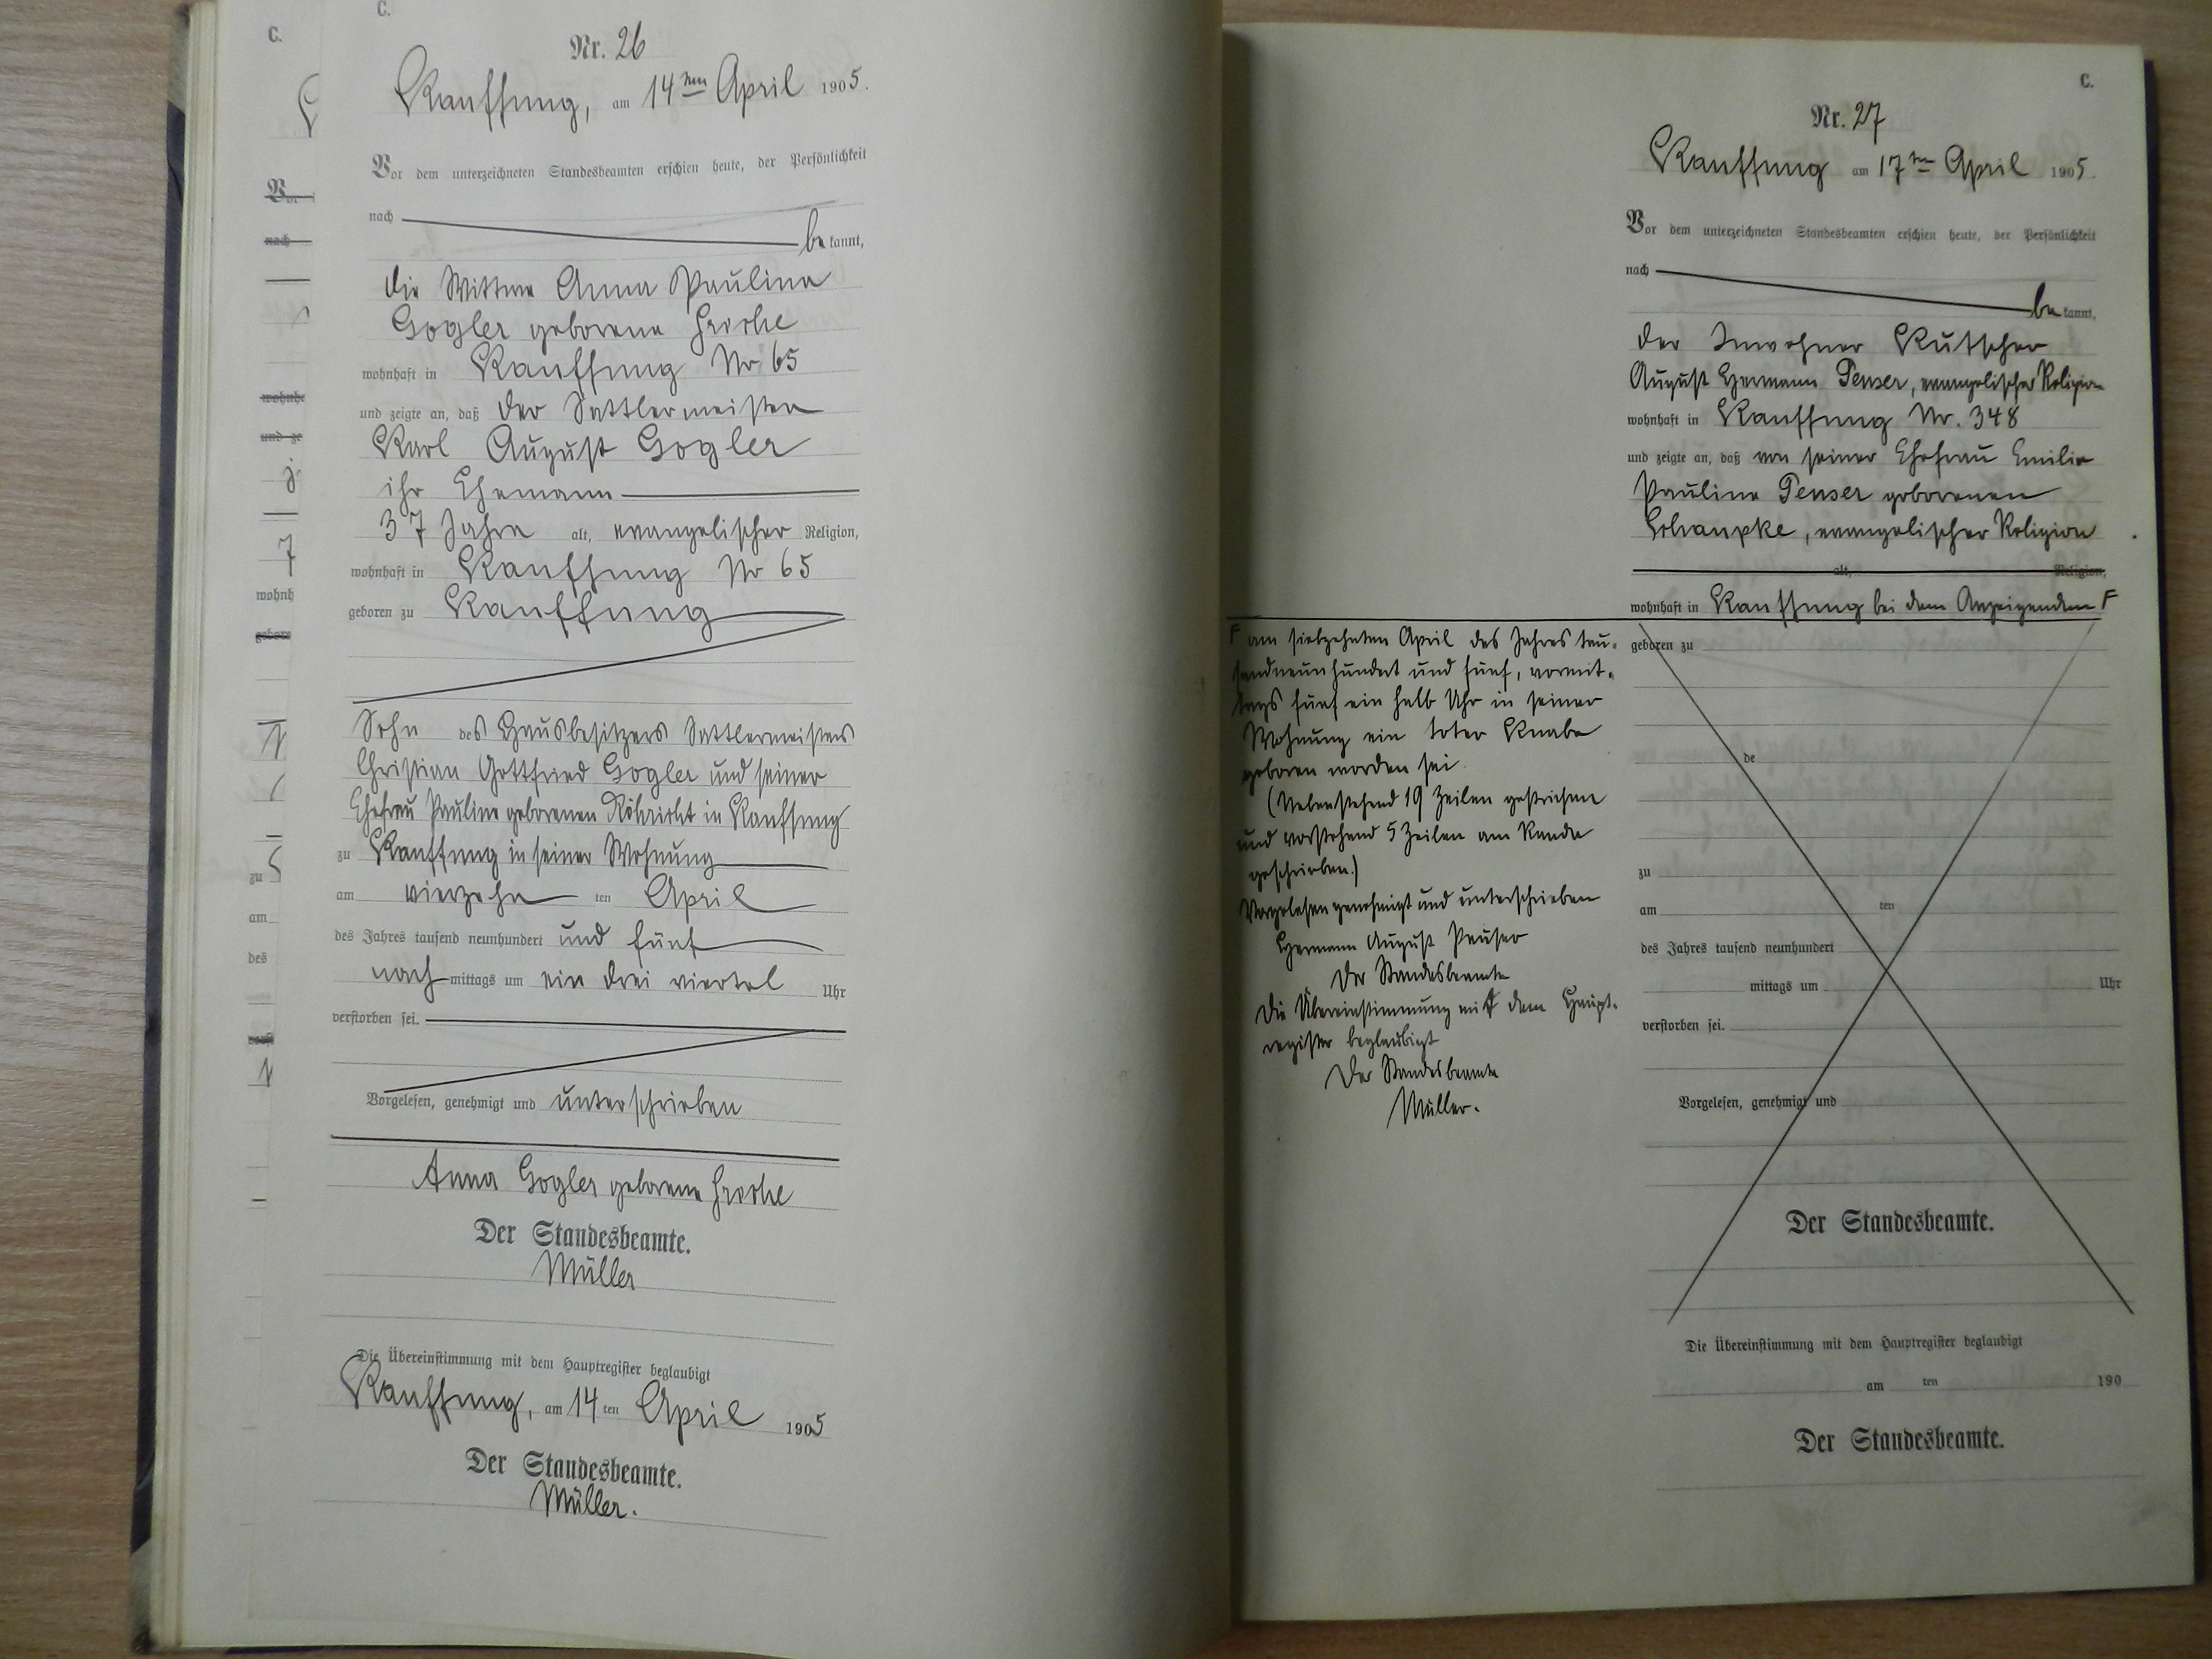 C.
C.
Nr. 26
Kauffung, am 14ten April 1905.
Vor dem unterzeichneten Standesbeamten erschien heute, der Persönlichkeit
nach be kannt,
die Wittwe Anna Paulina
Gogler geborene
wohnhaft in Kauffung Nr 65
und zeigte an, daß der Sattlermeister
Karl August Gogler
ihr Ehemann
37 Jahre alt, evangelischer Religion,
wohnhaft in Kauffung Nr 65
geboren zu Kauffung
Sohn des Hausbesitzers Sattlermeisters
Christian Gottfried Gogler und seiner
Ehefrau Pauline geborenen Röhricht in Kauffung
zu Kauffung in seiner Wohnung
am vierzehn ten April
des Jahres tausend neunhundert und fünf
nach mittags um ein drei viertel Uhr
verstorben sei.
Vorgelesen, genehmigt und unterschrieben
Anna Gogler geborene
Der Standesbeamte.
Müller
Die Übereinstimmung mit dem Hauptregister beglaubigt
Kauffung, am 14 ten April 1905
Der Standesbeamte.
Müller.
C.
Nr. 27
Kauffung am 17ten April 1905.
Vor dem unterzeichneten Standesbeamten erschien heute, der Persönlichkeit
nach be kannt,
der Inwohner Kutscher
August Hermann Penser, evangelischer Religion
wohnhaft in Kauffung Nr. 348
und zeigte an, daß von seiner Ehefrau Emilie
Pauline Penser geborenen
evangelischer Religion
alt, Religion,
wohnhaft in Kauffung bei dem Anzeigenden F
F am siebzehnten April des Jahres tau-
sendneunhundert und fünf, vormit-
tags fünf ein halb Uhr in seiner
Wohnung ein toter Knabe
geboren worden sei.
(Nebenstehend 19 Zeilen gestrichen
und vorstehend 5 Zeilen am Rande
geschrieben.)
Vorgelesen genehmigt und unterschrieben
Hermann August Penser
Der Standesbeamte
Die Übereinstimmung mit dem Haupt-
register beglaubigt
Der Standesbeamte
Müller.
geboren zu
de
zu
am ten
des Jahres tausend neunhundert
mittags um Uhr
verstorben sei.
Vorgelesen, genehmigt und
Der Standesbeamte.
Die Übereinstimmung mit dem Hauptregister beglaubigt
am ten 190
Der Standesbeamte.